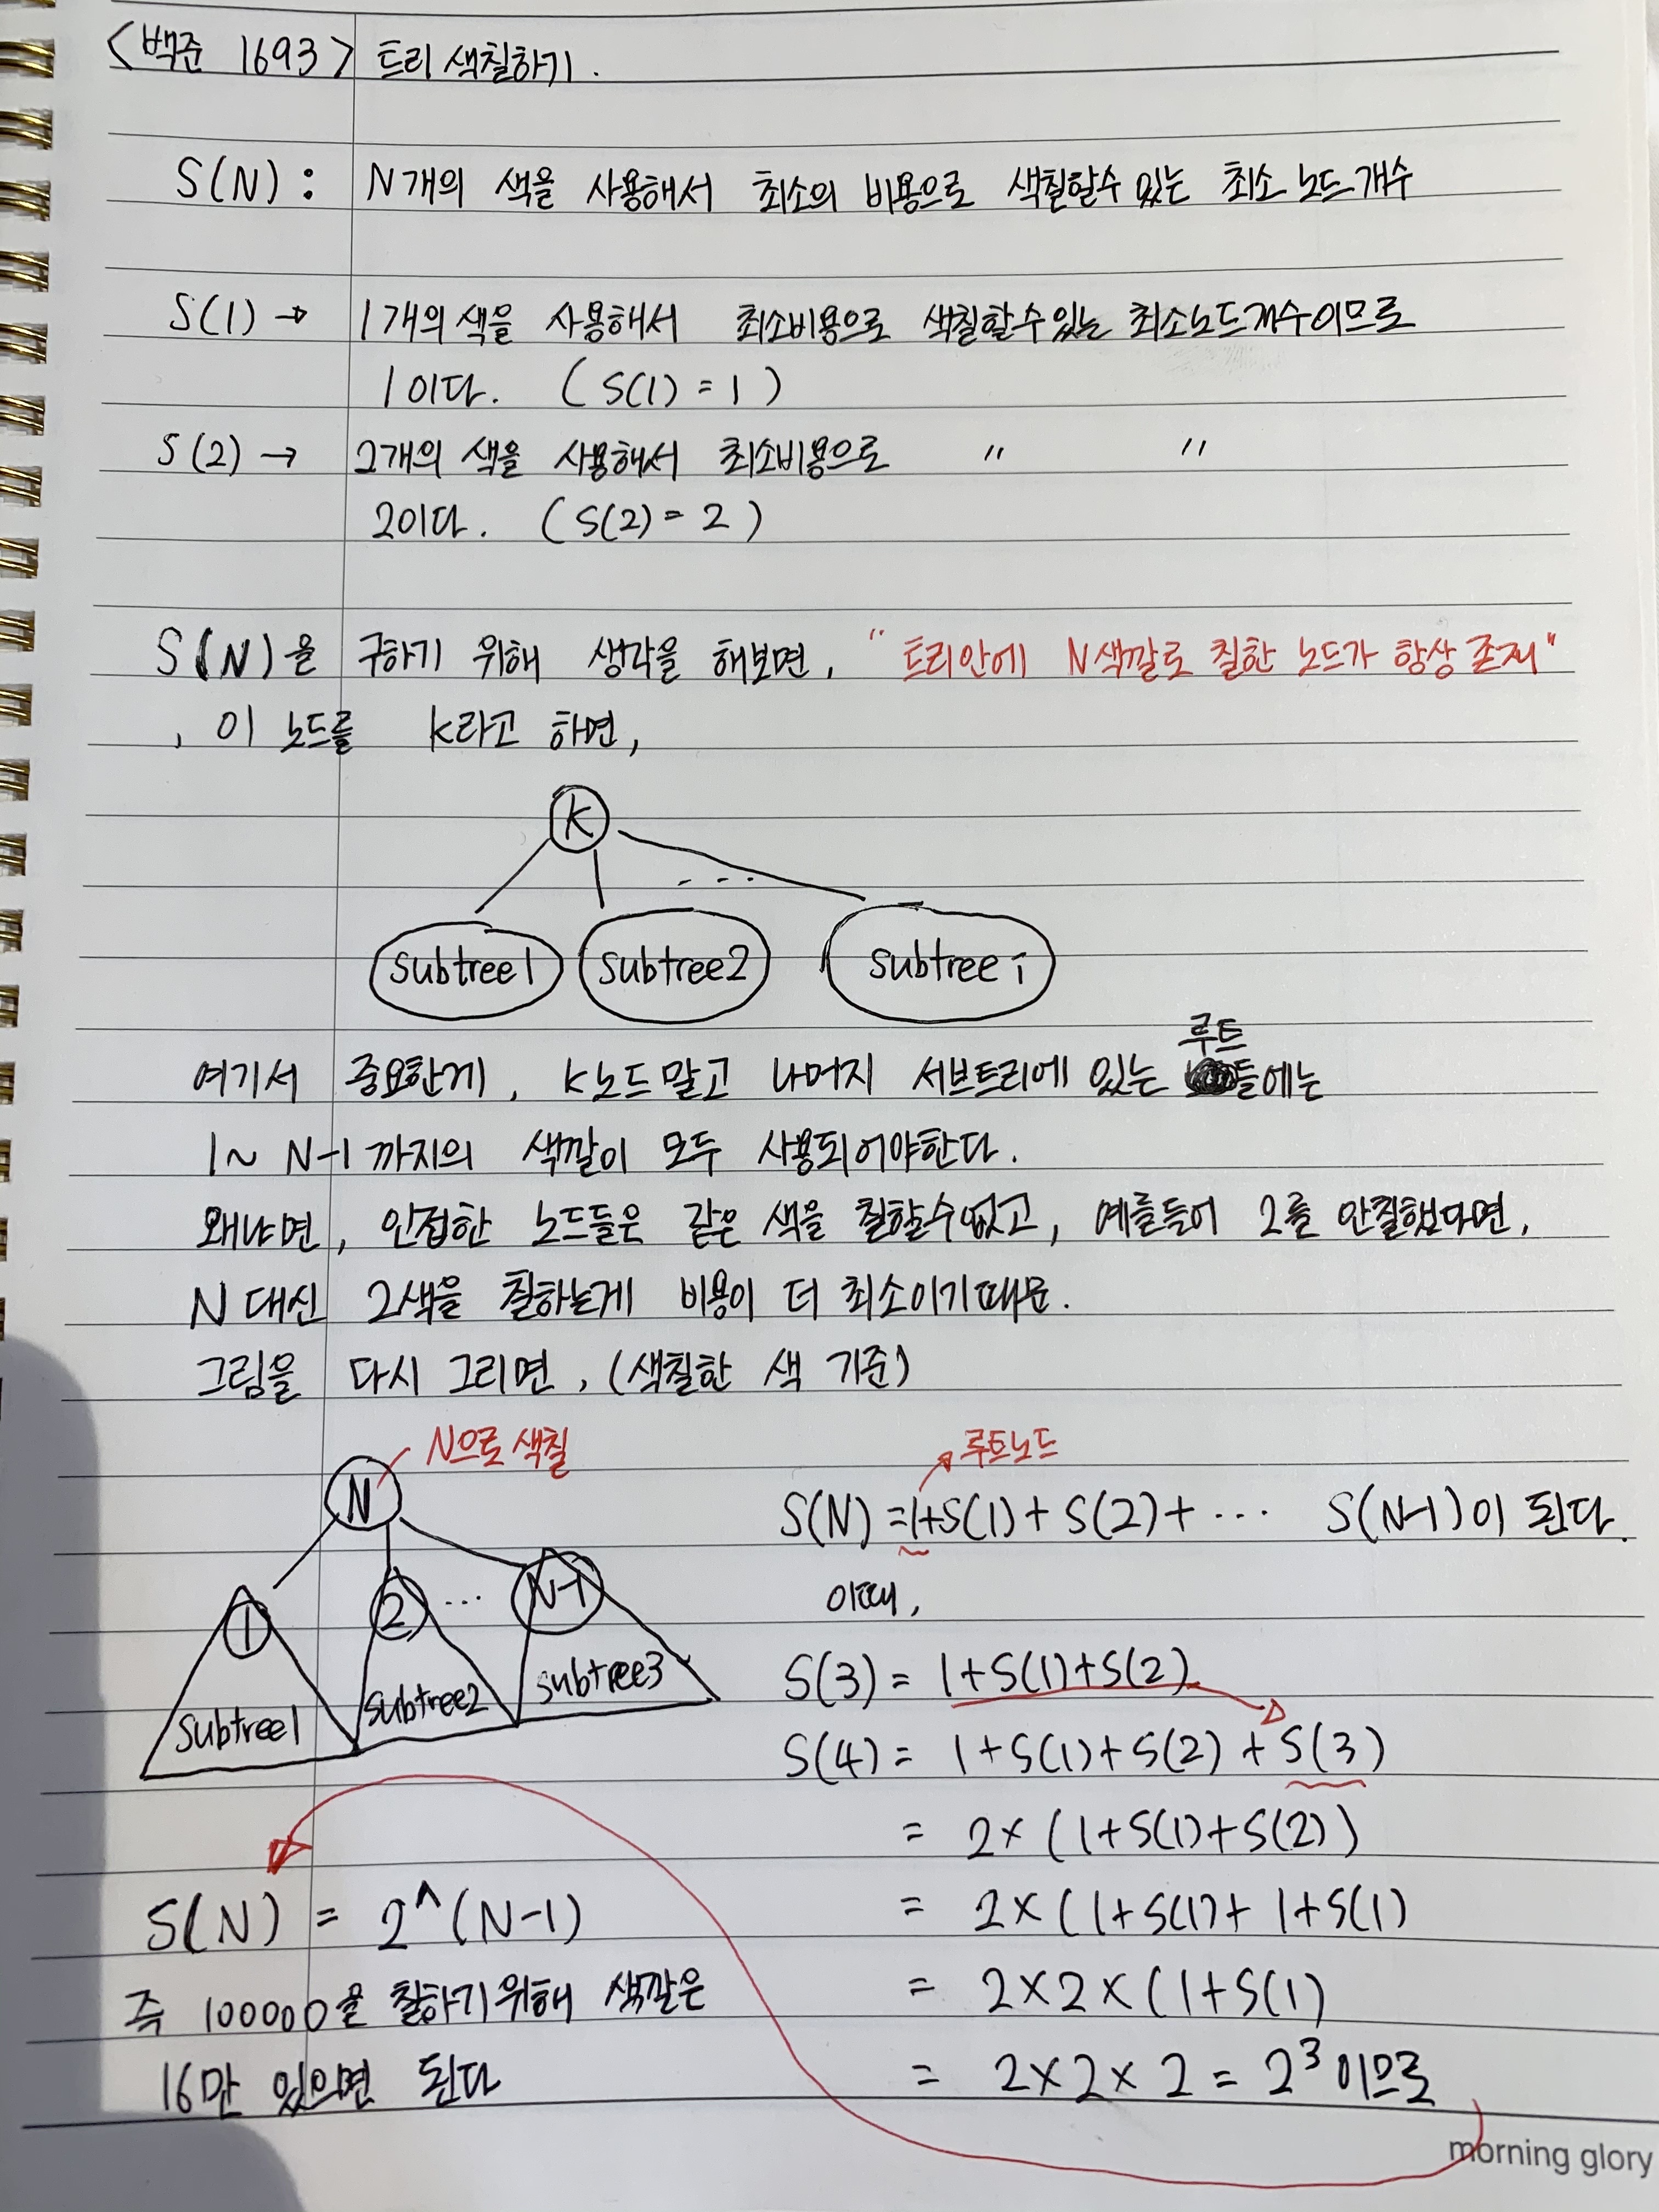 <백준 1693> 트리 색칠하기.
S(N) : N개의 색을 사용해서 최소의 비용으로 색칠할수 있는 최소 노드 개수
S(1) → 1개의 색을 사용해서 최소비용으로 색칠할수있는 최소노드개수이므로
1이다. ( S(1) = 1 )
S(2) → 2개의 색을 사용해서 최소비용으로 〃 〃
2이다. ( S(2) = 2 )
S(N)을 구하기 위해 생각을 해보면, "트리안에 N색깔로 칠한 노드가 항상 존재"
, 이 노드를 K라고 하면,
K
...
subtree1 subtree2 subtree i
여기서 중요한게, K노드 말고 나머지 서브트리에 있는 루트들에는
1~ N-1 까지의 색깔이 모두 사용되어야한다.
왜냐면, 인접한 노드들은 같은 색을 칠할수없고, 예를들어 2를 안칠했다면,
N 대신 2색을 칠하는게 비용이 더 최소이기때문.
그림을 다시 그리면, (색칠한 색 기준)
N으로 색칠
N
1 2 ... N-1
subtree1 subtree2 subtree3
루트노드
S(N) = 1+S(1) + S(2) + ... S(N-1)이 된다.
이때,
S(3) = 1+S(1)+S(2)
S(4) = 1+S(1)+S(2) +S(3)
= 2× (1+S(1)+S(2))
= 2× (1+S(1)+ 1+S(1)
= 2×2× (1+S(1)
= 2×2×2 = 2³ 이므로
S(N) = 2^(N-1)
즉 100000을 칠하기위해 색깔은
16만 있으면 된다
morning glory